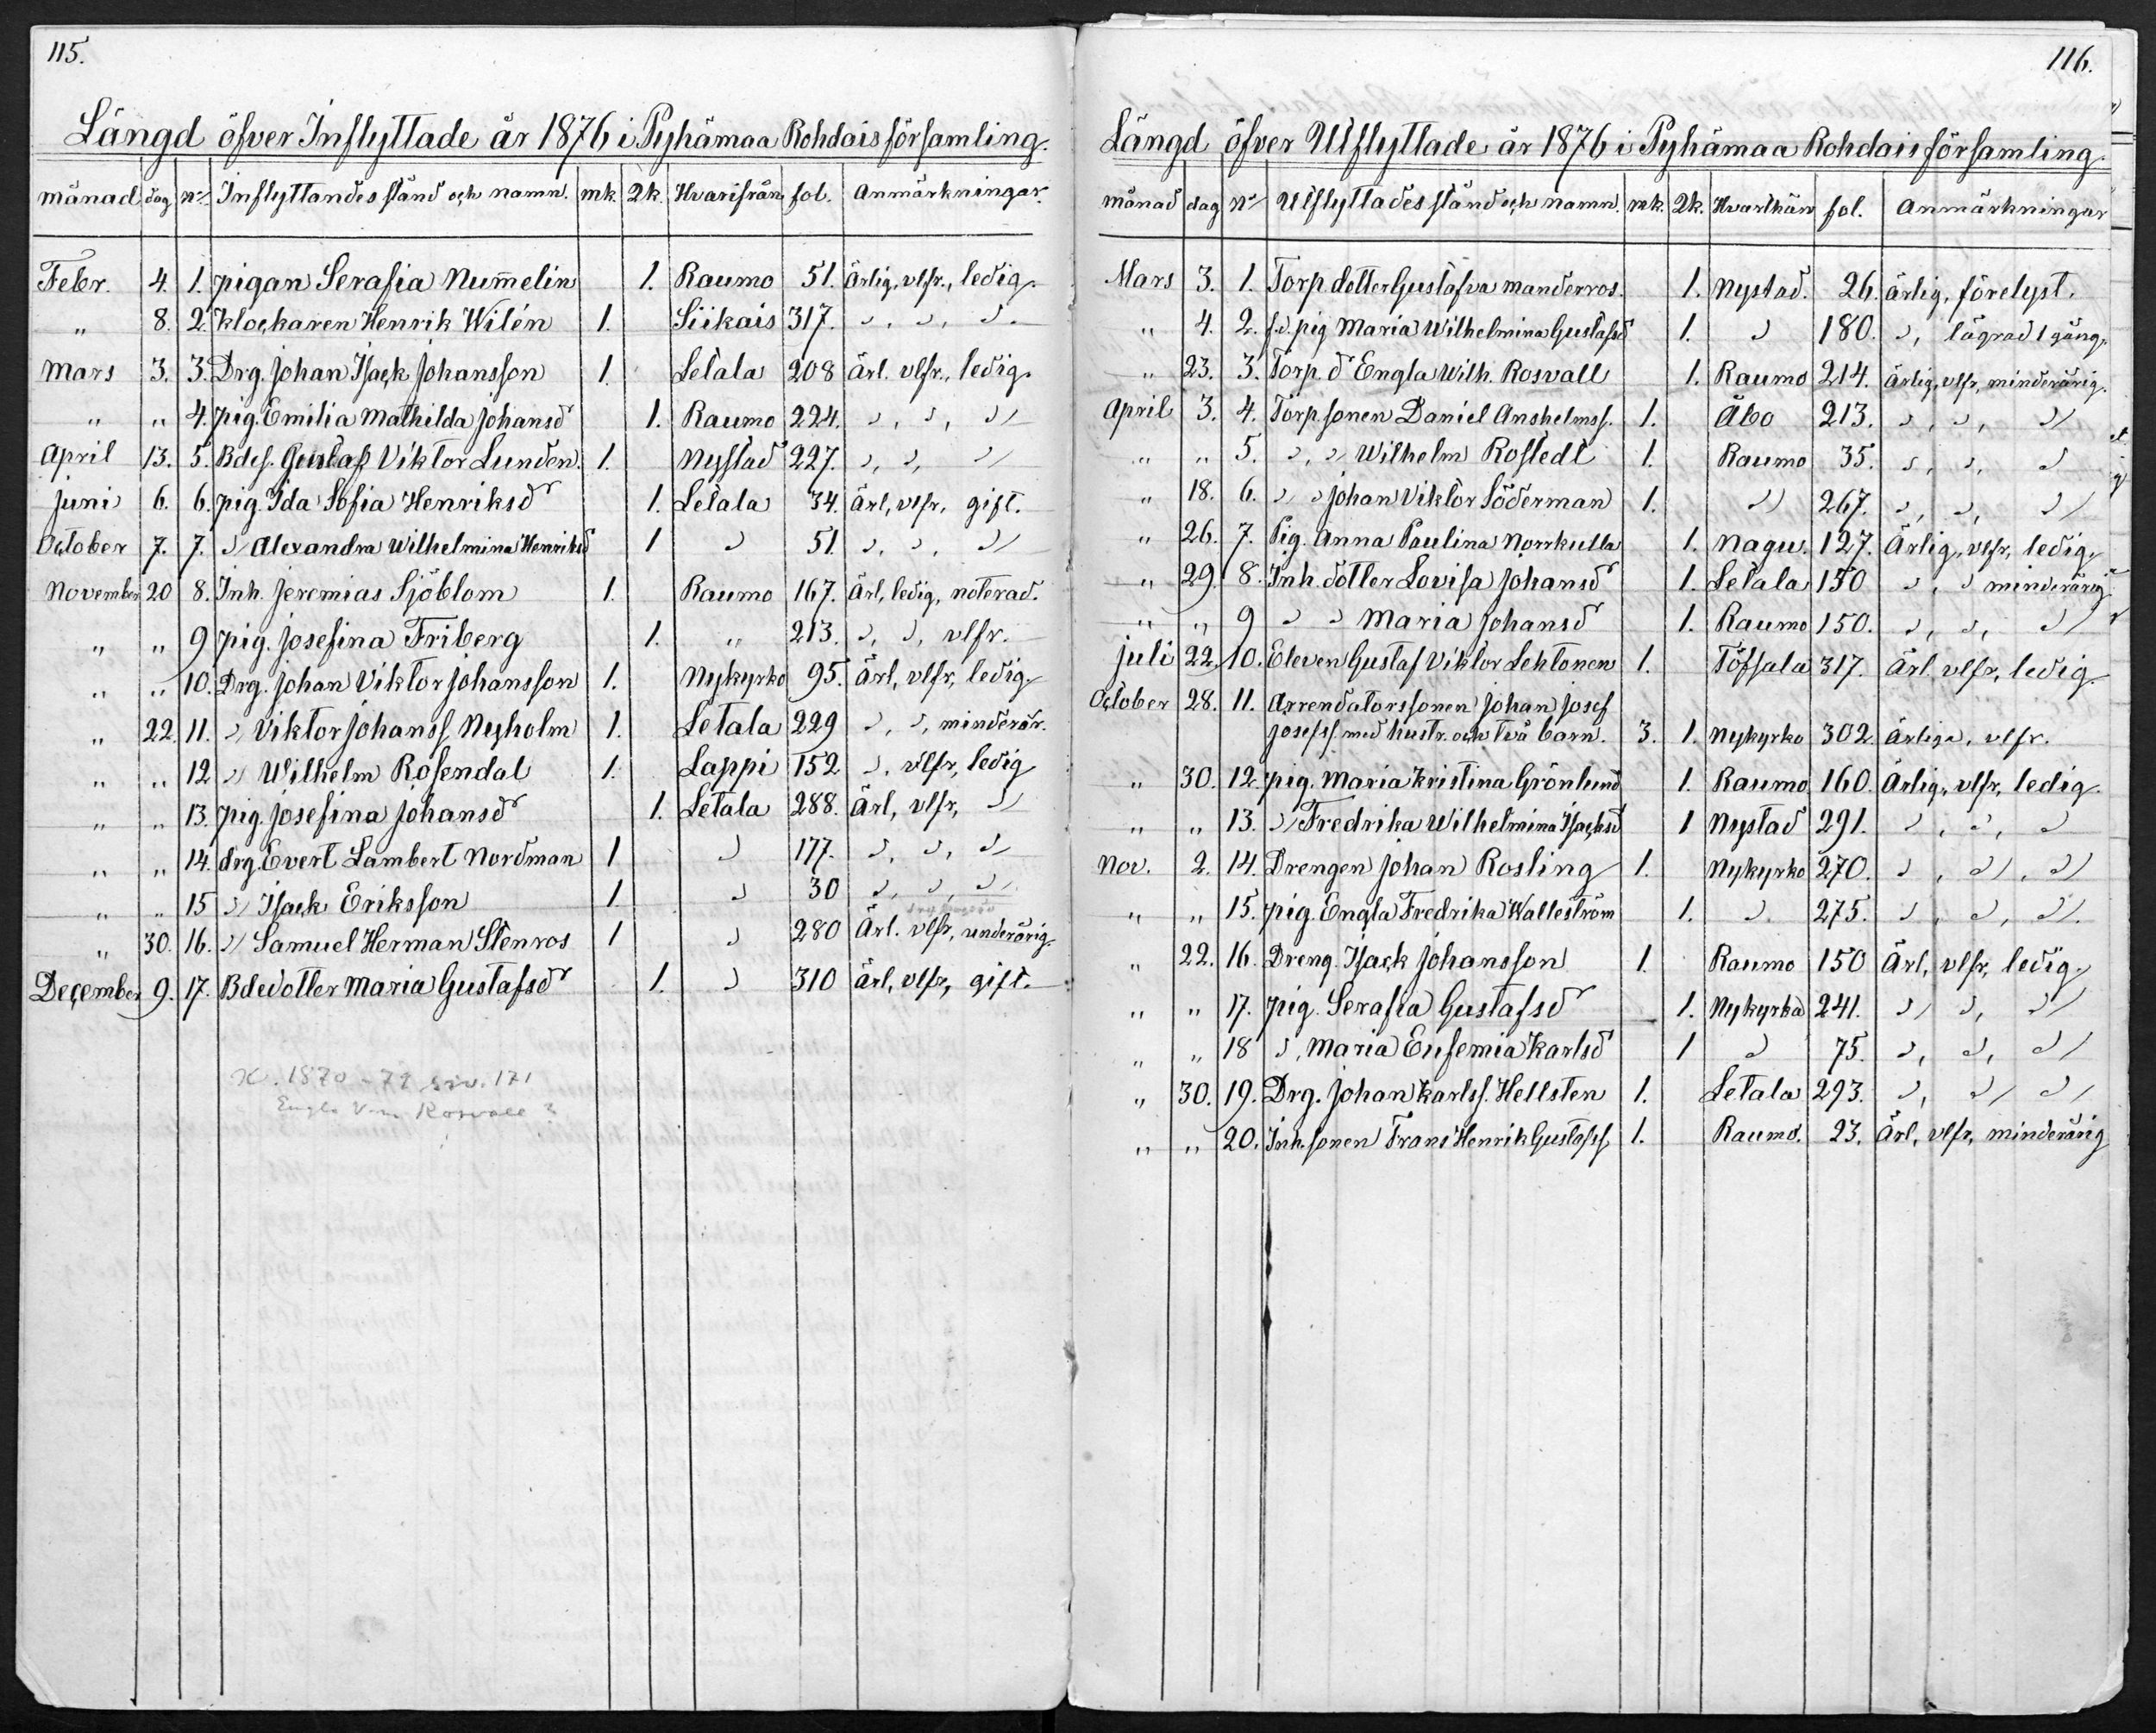 115.
Längd öfver Inflyttade år 1876 i Pyhämaa Rohdais församling.
månad dag No Inflyttandes stånd och namn. mk. Qk. Hvarifrån fol. Anmärkningar.
Febr. 4. 1. pigan Serafia Num̅elin 1. Raumo 51. Ärlig, vlfr., ledig.
" 8. 2. klockaren Henrik Wilén 1. Siikais 317. ", ", ".
Mars 3. 3. Drg. Johan Isack Johansson 1. Letala 208 Ärl. vlfr., ledig.
" " 4. pig. Emilia Mathilda Johansdr 1. Raumo 224. ", ", "
April 13. 5. Bdes. Gustaf Viktor Lunden. 1. Nystad 227. ", ", "
Juni 6. 6. pig. Ida Sofia Henriksdr 1. Letala 34. Ärl, vlfr, gift.
October 7. 7. " Alexandra Wilhelmina Henriksd 1 " 51. ", ", "
November 20 8. Inh. Jeremias Sjöblom 1. Raumo 167. Ärl, ledig, noterad.
" " 9 pig. Josefina Friberg 1. " 213. ", ", vlfr.
" " 10. Drg. Johan Viktor Johansson 1. Nykyrko 95. Ärl, vlfr, ledig.
" 22. 11. " Viktor Johanss. Nyholm 1. Letala 229 ", ", minderår.
" " 12 " Wilhelm Rosendal 1. Lappi 152 ", vlfr, ledig
" " 13. pig. Josefina Johansdr 1. Letala 288. Ärl, vlfr, "
" " 14. drg. Evert Lambert Nordman 1 " 177. ", ", "
" " 15 " Isack Eriksson 1. " 30 ", ", "
" 30. 16. " Samuel Herman Stenros 1 " 280 Ärl. vlfr, underårig.
December 9. 17. Bdedotter Maria Gustafsdr 1. " 310 ärl, vlfr, gift.
1870-79 siv. 171
Engla Rosvall
116.
Längd öfver Utflyttade år 1876 i Pyhämaa Rohdais församling.
månad dag No Utflyttades stånd och namn. mk. Qk. Hvarthän fol. Anmärkningar
Mars 3. 1. Torp. dotter Gustafva Manderros. 1. Nystad. 26. ärlig, förelyst.
" 4. 2. f.d. pig Maria Wilhelmina Gustafsd 1. " 180. ", lägrad 1 gång.
" 23. 3. Torp. d Engla Wilh. Rosvall 1. Raumo 214. ärlig, vlfr, minderårig.
April 3. 4. Torp. sonen Daniel Anshelmss. 1. Åbo 213. ", ", "
" " 5. ", " Wilhelm Rostedt 1. Raumo 35. ", ", "
" 18. 6. " " Johan Viktor Söderman 1. " 267. ", ", "
" 26. 7. Pig. Anna Paulina Norrkulla 1. Nagu. 127. Ärlig, vlfr, ledig.
" 29. 8. Inh. dotter Lovisa Johansdr 1. Letala 150 ", " minderårig.
" " 9 " " Maria Johansdr 1. Raumo 150. ", ", "
Juli 22. 10. Eleven Gustaf Viktor Lehtonen 1. Töfsala 317. Ärl. vlfr, ledig.
October 28. 11. Arrendatorssonen Johan Josef
Josefss. med hustr. och två barn. 3. 1. Nykyrko 302. Ärliga, vlfr.
" 30. 12. pig. Maria Kristina Grönlund 1. Raumo 160. Ärlig, vlfr, ledig.
" " 13. " Fredrika Wilhelmina Isacksd 1 Nystad 291. ", ", "
Nov. 2. 14. Drengen Johan Rosling 1. Nykyrko 270. ", ", "
" " 15. pig. Engla Fredrika Walleström 1. " 275. ", ", ".
" 22. 16. Dreng. Isack Johansson 1. Raumo 150 Ärl, vlfr, ledig.
" " 17. pig. Serafia Gustafsdr 1. Nykyrka 241. " ", "
" " 18 ", Maria Eufemia Karlsd 1 " 75. ", ", "
" 30. 19. Drg. Johan Karlss. Hellsten 1. Letala 293. ", " "
" " 20. Inh. sonen Frans Henrik Gustafss. 1. Raumo. 23. Ärl, vlfr, minderårig